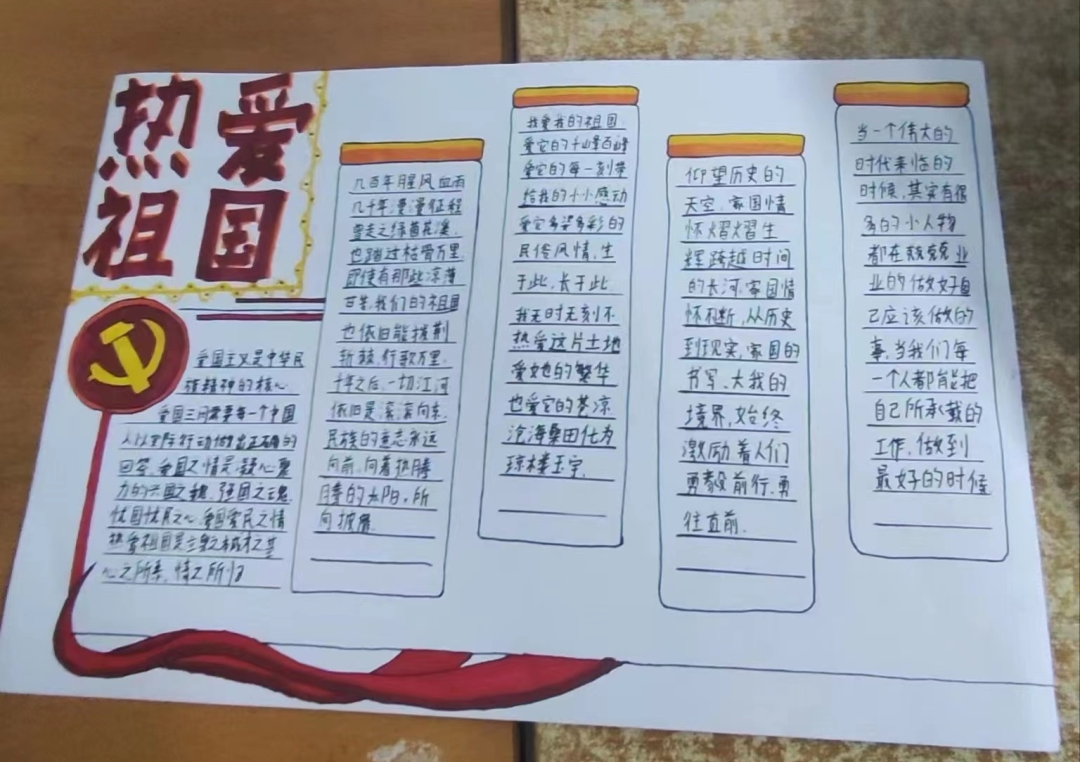 热爱
祖国
爱国主义是中华民
族精神的核心
爱国三问需要每一个中国
人以实际行动做出正确的
回答，爱国之情是凝心聚
力的兴国之魂，强国之魂
忧国忧民之心，爱国爱民之情
热爱祖国是立身之本成才之基
心之所系，情之所归
几百年腥风血雨
几十年漫漫征程
曾走之绿茵花溪，
也踏过枯骨万里
即使有那些凉薄
苦等，我们的祖国
也依旧能披荆
斩棘，行歌万里，
十年之后，一切江河
依旧是滚滚向东
民族的意志永远
向前，向着热腾
腾的太阳，所
向披靡
我爱我的祖国
爱它的千峰百嶂
爱它的每一刻带
给我的小小感动
爱它多姿多彩的
民俗风情，生
于此，长于此
我无时无刻不
热爱这片土地
爱她的繁华
也爱它的苍凉
沧海桑田化为
琼楼玉宇，
仰望历史的
天空，家国情
怀熠熠生
辉跨越时间
的长河，家国情
怀不断，从历史
到现实，家国的
书写，大我的
境界，始终
激励着人们
勇毅前行，勇
往直前，
当一个伟大的
时代来临的
时候，其实有很
多的小人物
都在兢兢业
业的做好自
己应该做的
事，当我们每
一个人都能把
自己所承载的
工作，做到
最好的时候